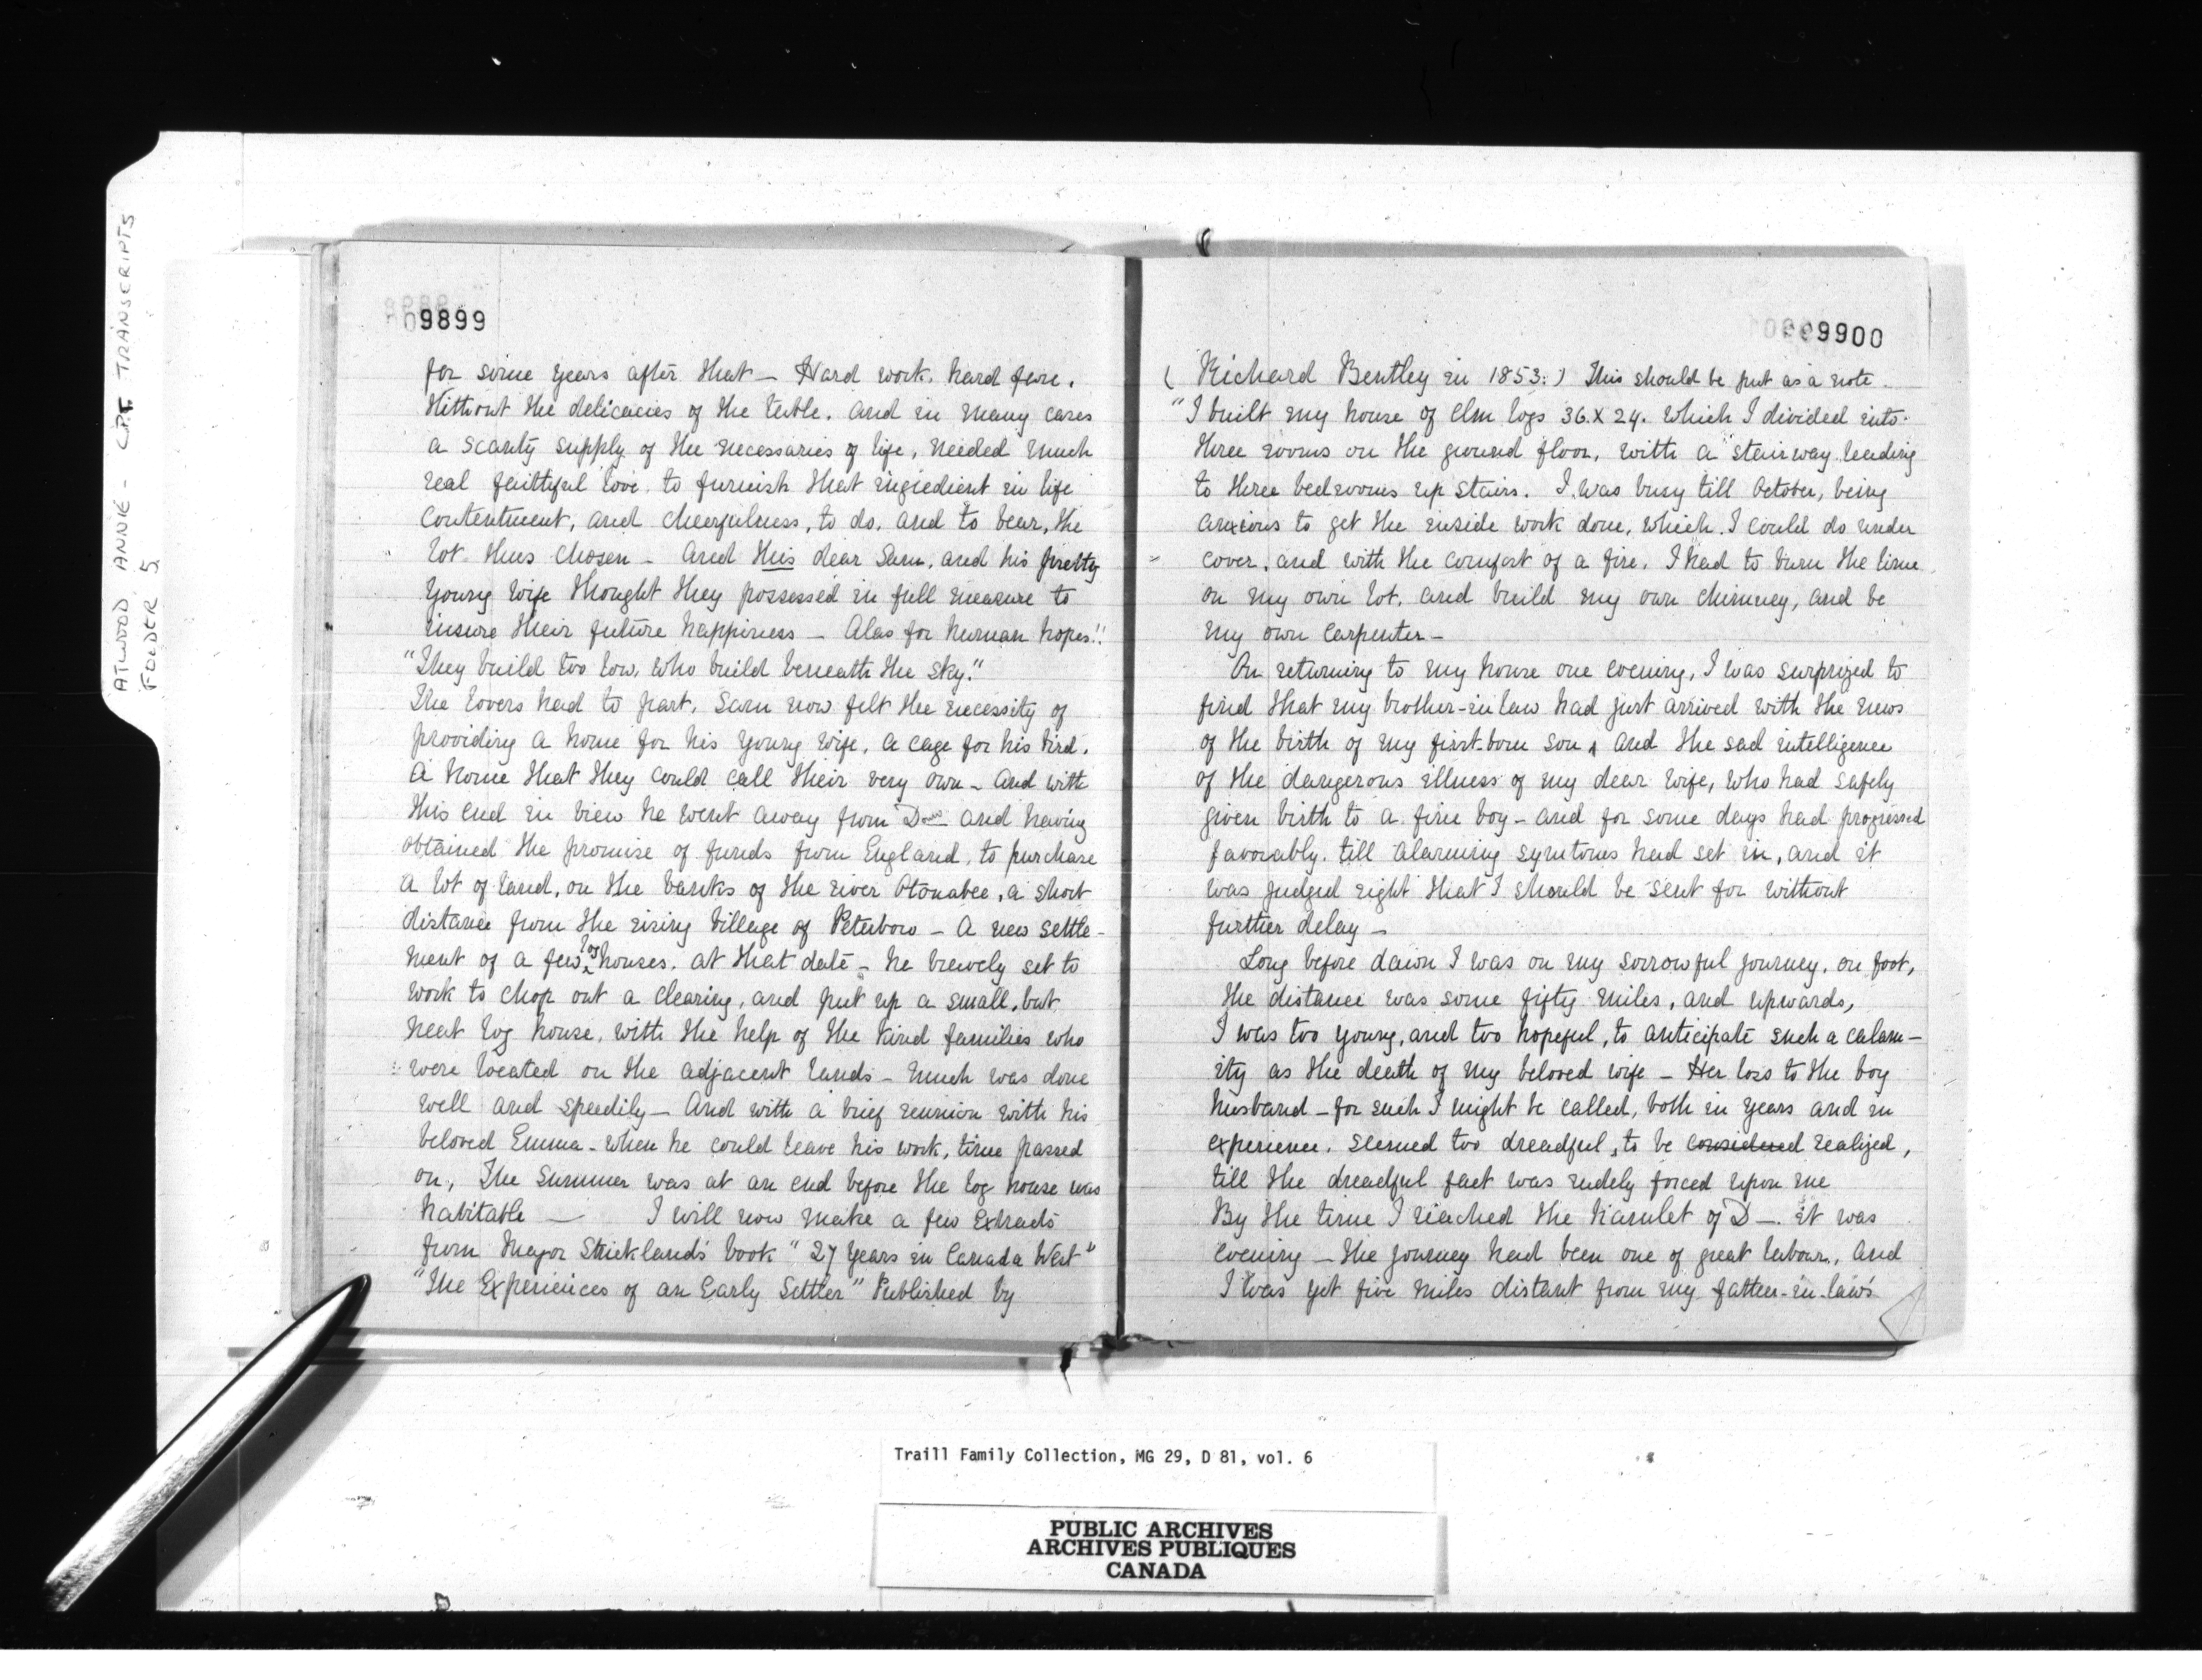 ATWOOD ANNIE - C.P.T. TRANSCRIPTS
FOLDER 5
9899
for some years after that — Hard work, hard fare.
Without the delicacies of the table. and in many cases
a scanty supply of the necessaries of life, needed much
real faithful love to furnish that ingredient in life
contentment, and cheerfulness, to do, and to bear, the
lot thus chosen — And this dear Sam, and his pretty
young wife thought they possessed in full measure to
insure their future happiness — Alas for human hopes!!
"They build too low, who build beneath the sky."
The lovers had to part. Sam now felt the necessity of
providing a home for his young wife, a cage for his bird.
A home that they could call their very own — And with
this end in view he went away from D— and having
obtained the promise of funds from England, to purchase
a lot of land, on the banks of the river Otonabee, a short
distance from the rising village of Peterboro — A new settle-
ment of a few log houses. at that date — he bravely set to
work to chop out a clearing, and put up a small, but
neat log house, with the help of the kind families who
were located on the adjacent lands — Much was done
well and speedily — And with a brief reunion with his
beloved Emma — when he could leave his work, time passed
on, The Summer was at an end before the log house was
habitable — I will now make a few Extracts
from Major Strickland's book "27 Years in Canada West"
"The Experiences of an Early Settler" Published by
9900
( Richard Bentley in 1853.) This should be put as a note.
"I built my house of Elm logs 36 X 24. which I divided into
three rooms on the ground floor, with a stairway leading
to three bedrooms up stairs. I was busy till October, being
anxious to get the inside work done, which I could do under
cover, and with the comfort of a fire. I had to burn the lime
on my own lot, and build my own chimney, and be
my own carpenter —
On returning to my house one evening, I was surprized to
find that my brother-in law had just arrived with the news
of the birth of my first-born son, and the sad intelligence
of the dangerous illness of my dear wife, who had safely
given birth to a fine boy — and for some days had progressed
favorably. till alarming symtoms had set in, and it
was judged right that I should be sent for without
further delay —
Long before dawn I was on my sorrowful journey, on foot,
the distance was some fifty miles, and upwards,
I was too young, and too hopeful, to anticipate such a calam-
ity as the death of my beloved wife — Her loss to the boy
husband — for such I might be called, both in years and in
experience, seemed too dreadful, to be considered realized,
till the dreadful fact was rudely forced upon me
By the time I reached the hamlet of D — it was
evening — the journey had been one of great labour, and
I was yet five miles distant from my father-in-law's
Traill Family Collection, MG 29, D 81, vol. 6
PUBLIC ARCHIVES
ARCHIVES PUBLIQUES
CANADA